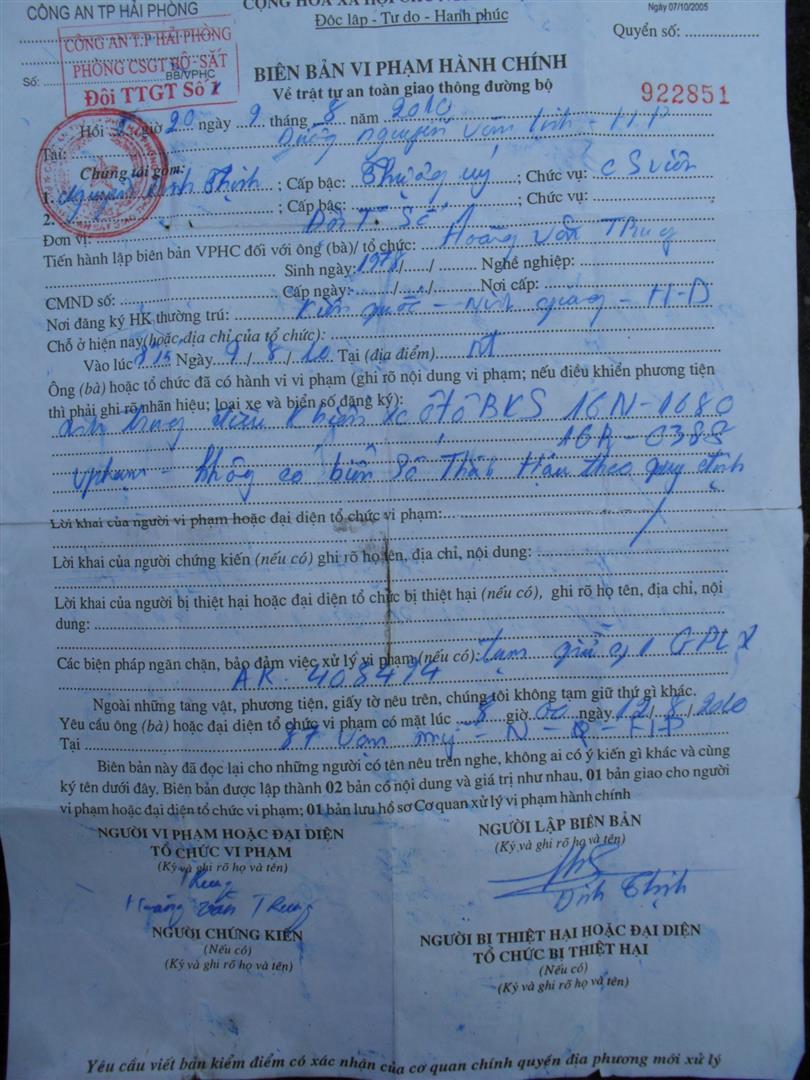 CÔNG AN TP HẢI PHÒNG
CỘNG HÒA XÃ HỘI CHỦ NGHĨA
Độc lập - Tự do - Hạnh phúc
Ngày 07/10/2005
Quyển số:
CÔNG AN T.P HẢI PHÒNG
PHÒNG CSGT BỘ - SẮT
Đội TTGT Số 1
Số: BB/VPHC
BIÊN BẢN VI PHẠM HÀNH CHÍNH
Về trật tự an toàn giao thông đường bộ
922851
Hồi giờ 20 ngày 9 tháng 8 năm 2010
Tại: Đường Nguyễn Văn Linh - H.P
Chúng tôi gồm:
1. Nguyễn Đình Thịnh ; Cấp bậc: Thượng úy ; Chức vụ: CS viên
2. ; Cấp bậc: ; Chức vụ:
Đơn vị: Đội T Số 1
Tiến hành lập biên bản VPHC đối với ông (bà)/ tổ chức: Hoàng Văn Trung
Sinh ngày: 1978 / / Nghề nghiệp:
CMND số: Cấp ngày: / / Nơi cấp:
Nơi đăng ký HK thường trú: Kiến Quốc - Ninh Giang - H-D
Chỗ ở hiện nay (hoặc địa chỉ của tổ chức):
Vào lúc 8 15 Ngày 9 / 8 / 10 Tại (địa điểm) nt
Ông (bà) hoặc tổ chức đã có hành vi vi phạm (ghi rõ nội dung vi phạm; nếu điều khiển phương tiện
thì phải ghi rõ nhãn hiệu; loại xe và biển số đăng ký):
Anh Trung điều khiển xe ôtô BKS 16N-1680
16R-0385
Vphạm - không có biển số Thành Hậu theo quy định
Lời khai của người vi phạm hoặc đại diện tổ chức vi phạm:
Lời khai của người chứng kiến (nếu có) ghi rõ họ tên, địa chỉ, nội dung:
Lời khai của người bị thiệt hại hoặc đại diện tổ chức bị thiệt hại (nếu có), ghi rõ họ tên, địa chỉ, nội
dung:
Các biện pháp ngăn chặn, bảo đảm việc xử lý vi phạm (nếu có): Tạm giữ 01 GPLX
AK. 408474
Ngoài những tang vật, phương tiện, giấy tờ nêu trên, chúng tôi không tạm giữ thứ gì khác.
Yêu cầu ông (bà) hoặc đại diện tổ chức vi phạm có mặt lúc 8 giờ 00 ngày 12 / 8 / 2010
Tại 87 Vạn Mỹ - N - Q - H-P
Biên bản này đã đọc lại cho những người có tên nêu trên nghe, không ai có ý kiến gì khác và cùng
ký tên dưới đây. Biên bản được lập thành 02 bản có nội dung và giá trị như nhau, 01 bản giao cho người
vi phạm hoặc đại diện tổ chức vi phạm; 01 bản lưu hồ sơ Cơ quan xử lý vi phạm hành chính
NGƯỜI VI PHẠM HOẶC ĐẠI DIỆN
TỔ CHỨC VI PHẠM
(Ký và ghi rõ họ và tên)
Trung
Hoàng Văn Trung
NGƯỜI LẬP BIÊN BẢN
(Ký và ghi rõ họ và tên)
Đình Thịnh
NGƯỜI CHỨNG KIẾN
(Nếu có)
(Ký và ghi rõ họ và tên)
NGƯỜI BỊ THIỆT HẠI HOẶC ĐẠI DIỆN
TỔ CHỨC BỊ THIỆT HẠI
(Nếu có)
(Ký và ghi rõ họ và tên)
Yêu cầu viết bản kiểm điểm có xác nhận của cơ quan chính quyền địa phương mới xử lý